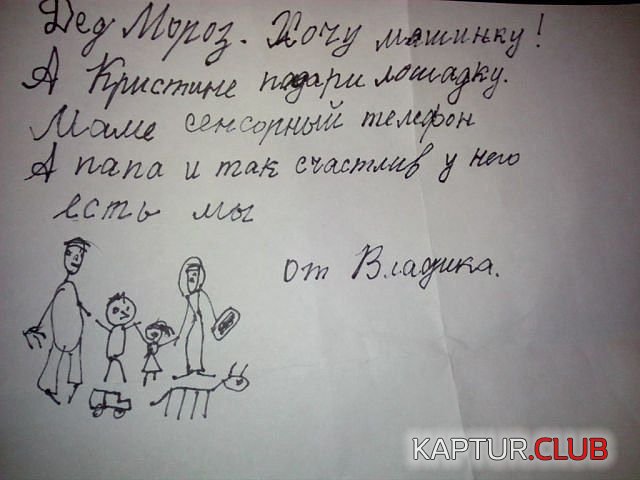 Дед Мороз. Хочу машинку!
А Кристине подари лошадку.
Маме сенсорный телефон
А папа и так счастлив у него
есть мы
от Владика.
KAPTUR.CLUB